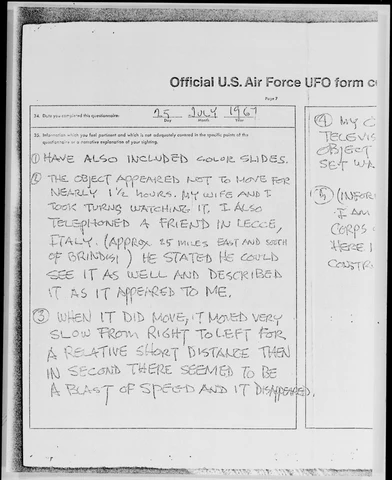 Official U.S. Air Force UFO form
Page 7
34. Date you completed this questionnaire:
25 JULY 1967
Day Month Year
35. Information which you feel pertinent and which is not adequately covered in the specific points of the
questionnaire or a narrative explanation of your sighting.
① HAVE ALSO INCLUDED COLOR SLIDES.
② THE OBJECT APPEARED NOT TO MOVE FOR
NEARLY 1½ HOURS. MY WIFE AND I
TOOK TURNS WATCHING IT. I ALSO
TELEPHONED A FRIEND IN LECCE,
ITALY. (APPROX 25 MILES EAST AND SOUTH
OF BRINDISI) HE STATED HE COULD
SEE IT AS WELL AND DESCRIBED
IT AS IT APPEARED TO ME.
③ WHEN IT DID MOVE, IT MOVED VERY
SLOW FROM RIGHT TO LEFT FOR
A RELATIVE SHORT DISTANCE THEN
IN SECOND THERE SEEMED TO BE
A BLAST OF SPEED AND IT DISAPPEARED.
④ MY
TELEVIS
OBJECT
SET WA
⑤ (INFOR
I AM
CORPS
HERE I
CONSTR